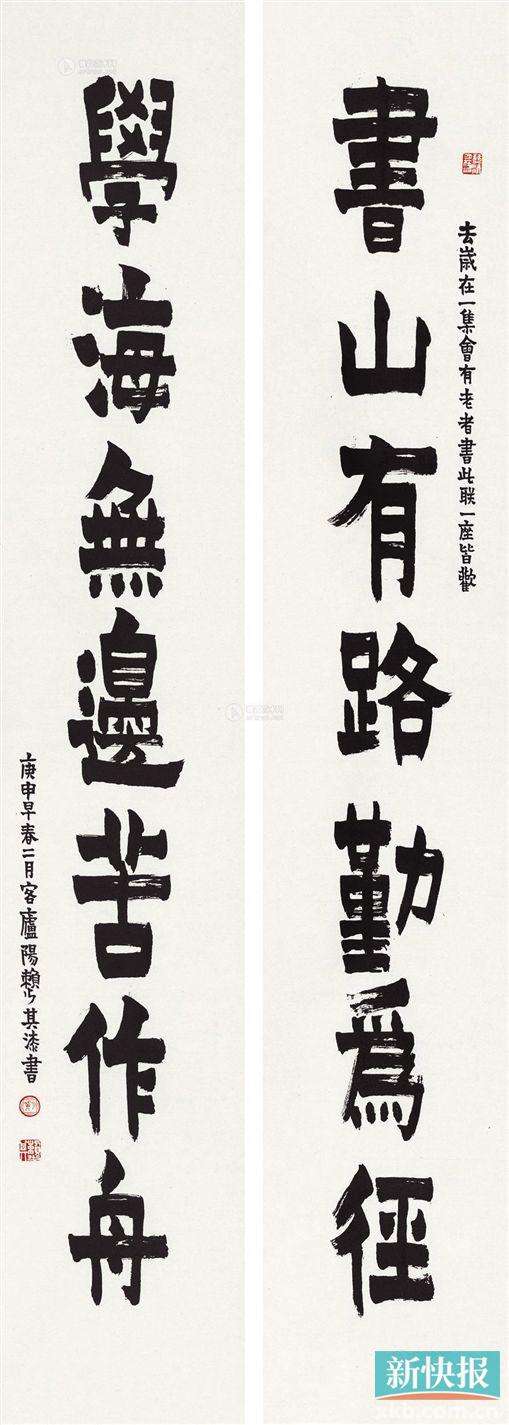 書山有路勤為徑
去歲在一集會有老者書此联一座皆歡
學海無邊苦作舟
庚申早春二月客廬陽賴少其漆書
新快报
xkb.com.cn